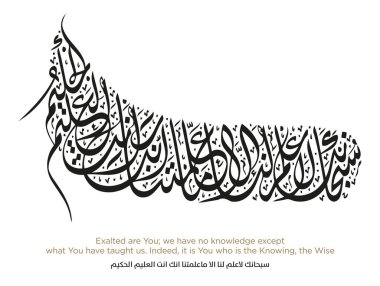 سبحانك لا علم لنا إلا ما علمتنا إنك أنت العليم الحكيم
Exalted are You; we have no knowledge except
what You have taught us. Indeed, it is You who is the Knowing, the Wise
سبحانك لاعلم لنا الا ماعلمتنا انك انت العليم الحكيم